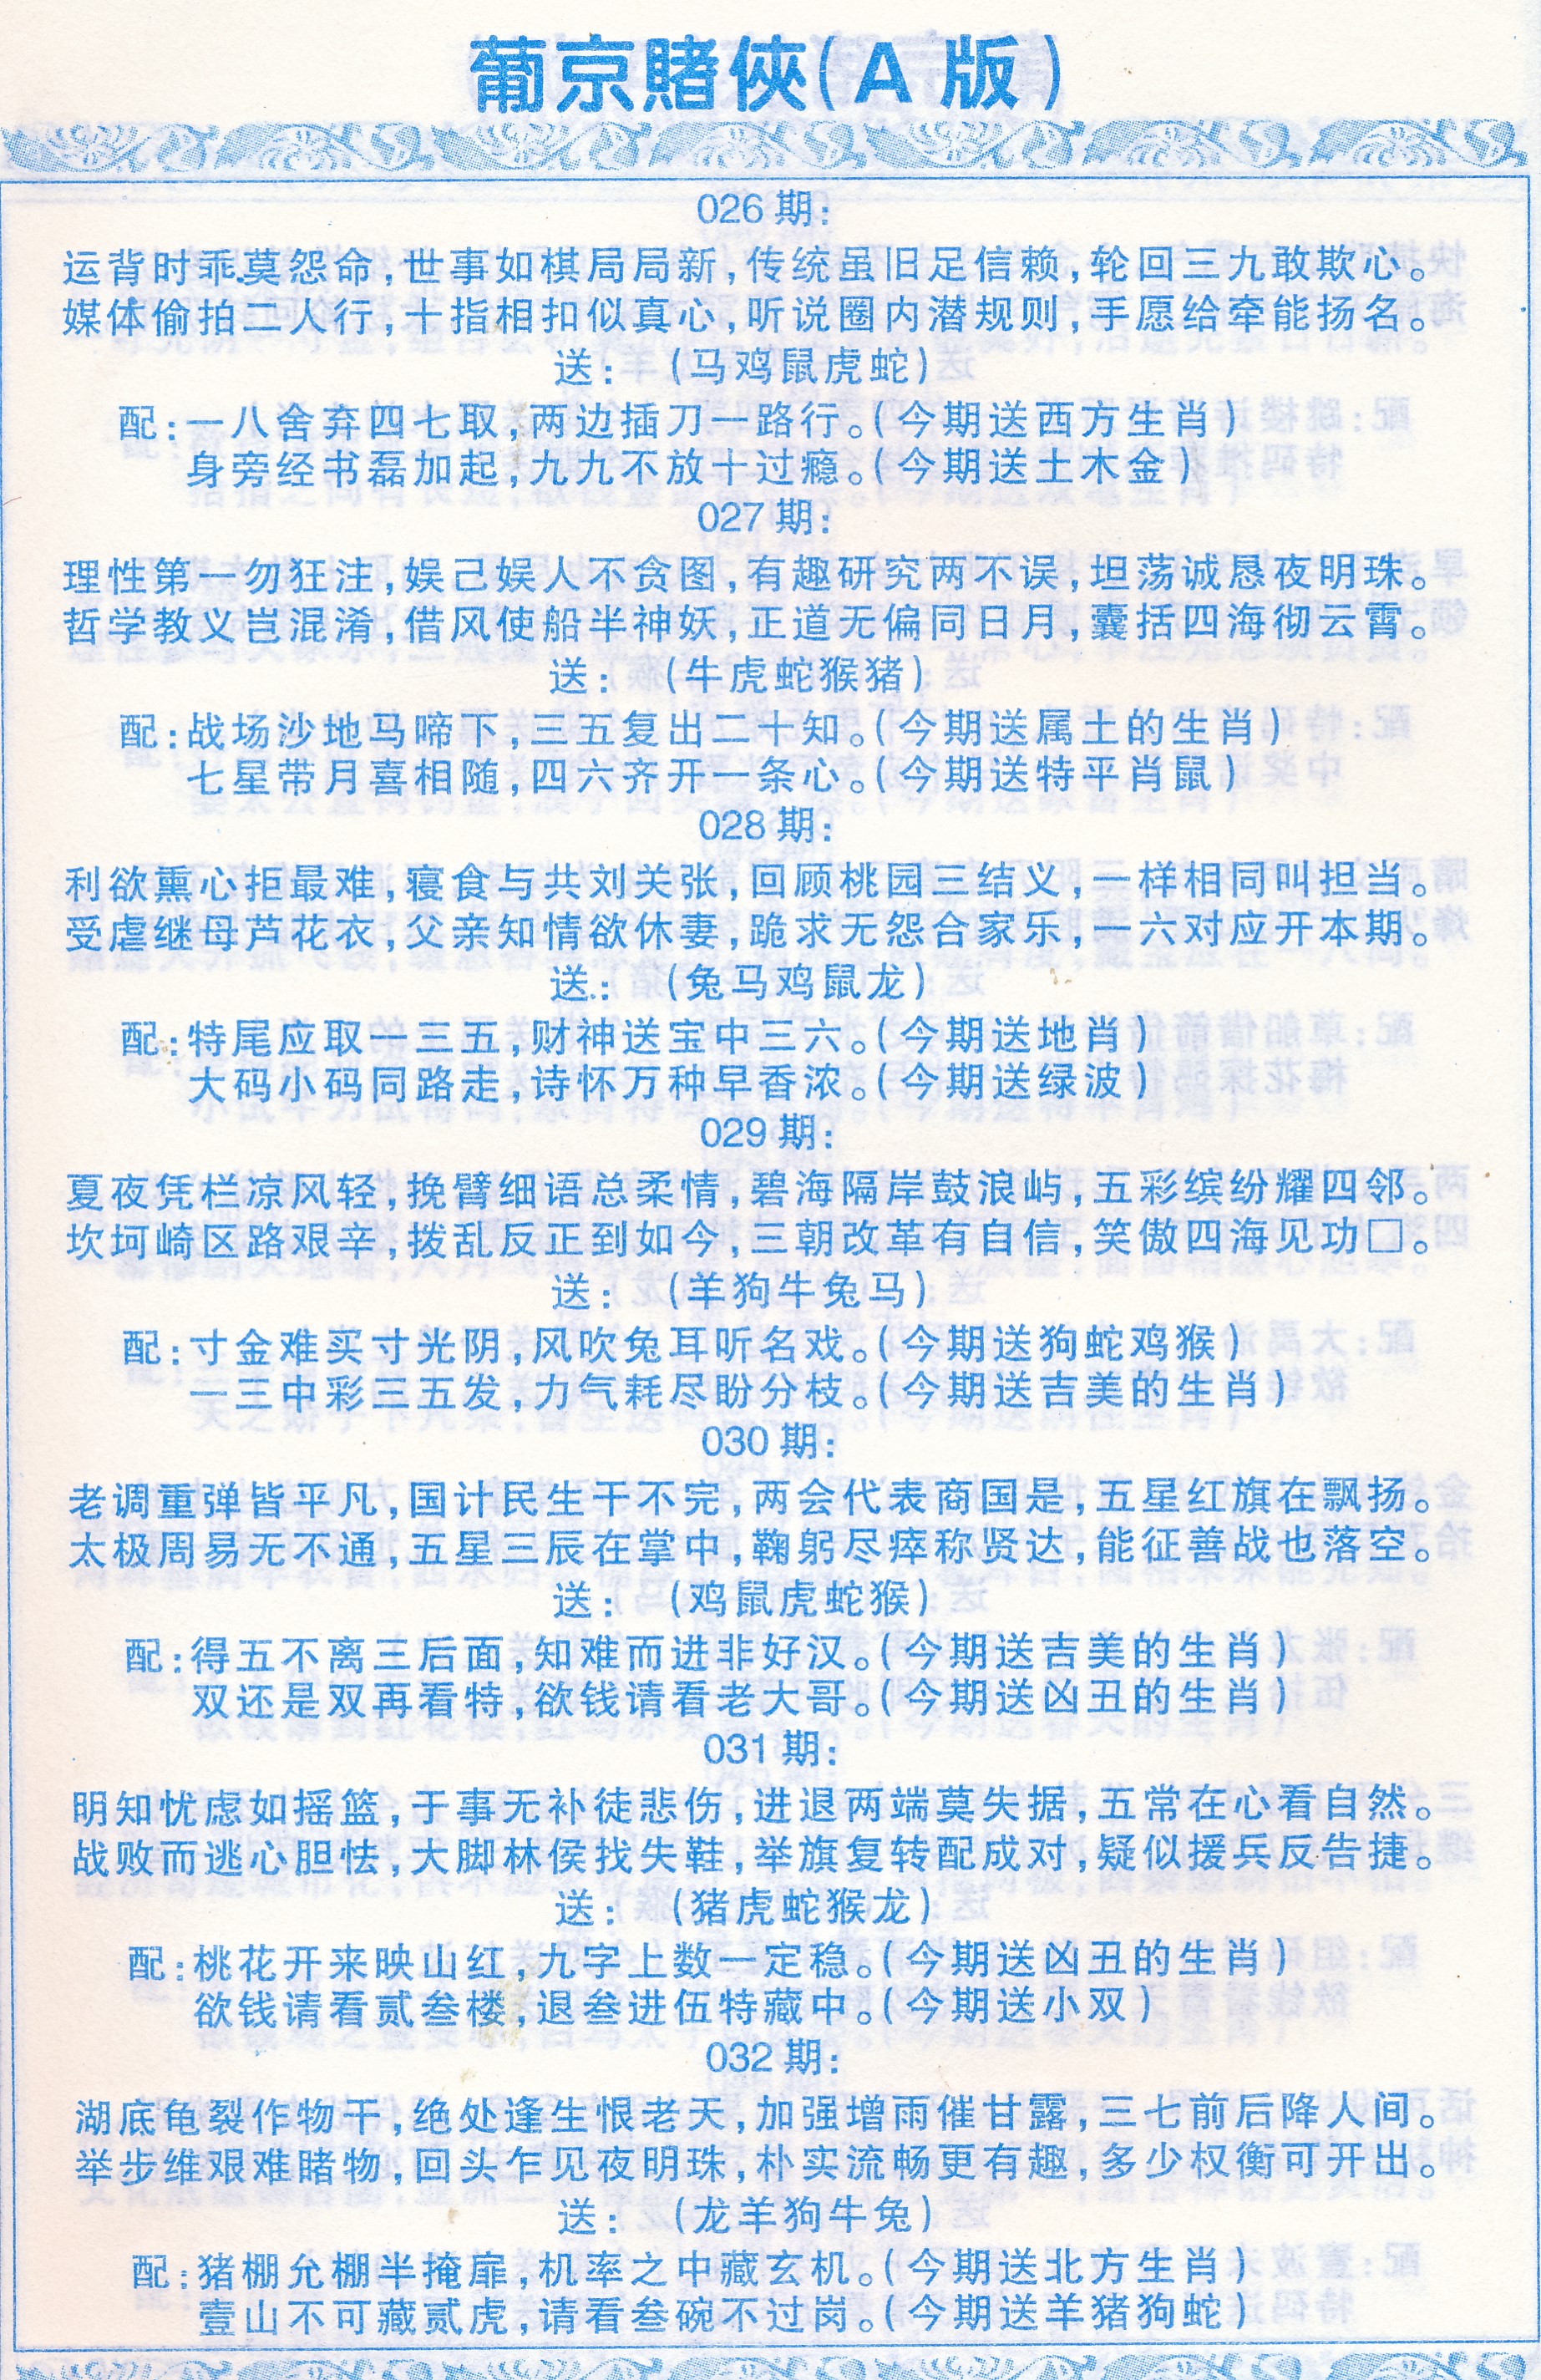 葡京賭俠(A 版)
026 期:
运背时乖莫怨命,世事如棋局局新,传统虽旧足信赖,轮回三九敢欺心。
媒体偷拍二人行,十指相扣似真心,听说圈内潜规则,手愿给牵能扬名。
送: (马鸡鼠虎蛇)
配:一八舍弃四七取,两边插刀一路行。(今期送西方生肖)
身旁经书磊加起,九九不放十过瘾。(今期送土木金)
027 期:
理性第一勿狂注,娱己娱人不贪图,有趣研究两不误,坦荡诚恳夜明珠。
哲学教义岂混淆,借风使船半神妖,正道无偏同日月,囊括四海彻云霄。
送: (牛虎蛇猴猪)
配:战场沙地马啼下,三五复出二十知。(今期送属土的生肖)
七星带月喜相随,四六齐开一条心。(今期送特平肖鼠)
028 期:
利欲熏心拒最难,寝食与共刘关张,回顾桃园三结义,一样相同叫担当。
受虐继母芦花衣,父亲知情欲休妻,跪求无怨合家乐,一六对应开本期。
送: (兔马鸡鼠龙)
配:特尾应取一三五,财神送宝中三六。(今期送地肖)
大码小码同路走,诗怀万种早香浓。(今期送绿波)
029 期:
夏夜凭栏凉风轻,挽臂细语总柔情,碧海隔岸鼓浪屿,五彩缤纷耀四邻。
坎坷崎区路艰辛,拨乱反正到如今,三朝改革有自信,笑傲四海见功□。
送: (羊狗牛兔马)
配:寸金难买寸光阴,风吹兔耳听名戏。(今期送狗蛇鸡猴)
一三中彩三五发,力气耗尽盼分枝。(今期送吉美的生肖)
030 期:
老调重弹皆平凡,国计民生干不完,两会代表商国是,五星红旗在飘扬。
太极周易无不通,五星三辰在掌中,鞠躬尽瘁称贤达,能征善战也落空。
送: (鸡鼠虎蛇猴)
配:得五不离三后面,知难而进非好汉。(今期送吉美的生肖)
双还是双再看特,欲钱请看老大哥。(今期送凶丑的生肖)
031 期:
明知忧虑如摇篮,于事无补徒悲伤,进退两端莫失据,五常在心看自然。
战败而逃心胆怯,大脚林侯找失鞋,举旗复转配成对,疑似援兵反告捷。
送: (猪虎蛇猴龙)
配:桃花开来映山红,九字上数一定稳。(今期送凶丑的生肖)
欲钱请看贰叁楼,退叁进伍特藏中。(今期送小双)
032 期:
湖底龟裂作物干,绝处逢生恨老天,加强增雨催甘露,三七前后降人间。
举步维艰难睹物,回头乍见夜明珠,朴实流畅更有趣,多少权衡可开出。
送: (龙羊狗牛兔)
配:猪棚允棚半掩扉,机率之中藏玄机。(今期送北方生肖)
壹山不可藏贰虎,请看叁碗不过岗。(今期送羊猪狗蛇)